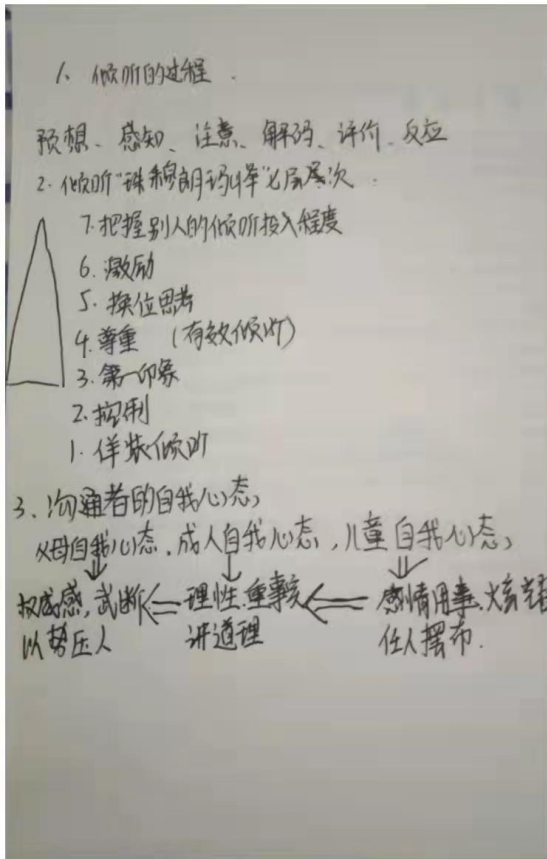 1、倾听的过程.
预想、感知、注意、解码、评价、反应
2.倾听"珠穆朗玛峰"七层层次.
7.把握别人的倾听投入程度
6.激励
5.换位思考
4.尊重 (有效倾听)
3.第一印象
2.抑制
1.佯装倾听
3、沟通者的自我心态,
父母自我心态.成人自我心态,儿童自我心态,
权威感,武断 理性.重事实 感情用事.
以势压人 讲道理 任人摆布.